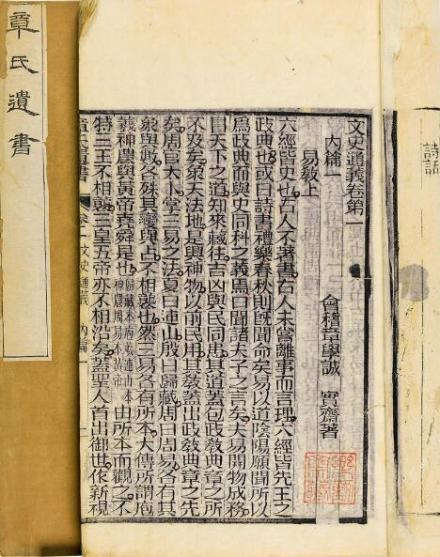 章氏遺書
詩話
文史通義卷第一
會稽章學誠 實齋著
內篇一
易教上
六經皆史也古人不著書古人未嘗離事而言理六經皆先王之
政典也或曰詩書禮樂春秋則既聞命矣易以道陰陽願聞所以
為政典而與史同科之義焉曰聞諸夫子之言矣夫易開物成務
冒天下之道知來藏往吉凶與民同患其道蓋包政教典章之所
不及矣象天法地是興神物以前民用其教蓋出政教典章之先
矣周官太卜掌三易之法夏曰連山殷曰歸藏周曰周易各有其
象與數各殊其變與占不相襲也然三易各有所本大傳所謂庖
羲神農與黃帝堯舜是也歸藏本庖羲連山本神農周易本黃帝由所本而觀之不
特三王不相襲三皇五帝亦不相沿矣蓋聖人首出御世作新視
章氏遺書 卷一 文史通義 內篇一